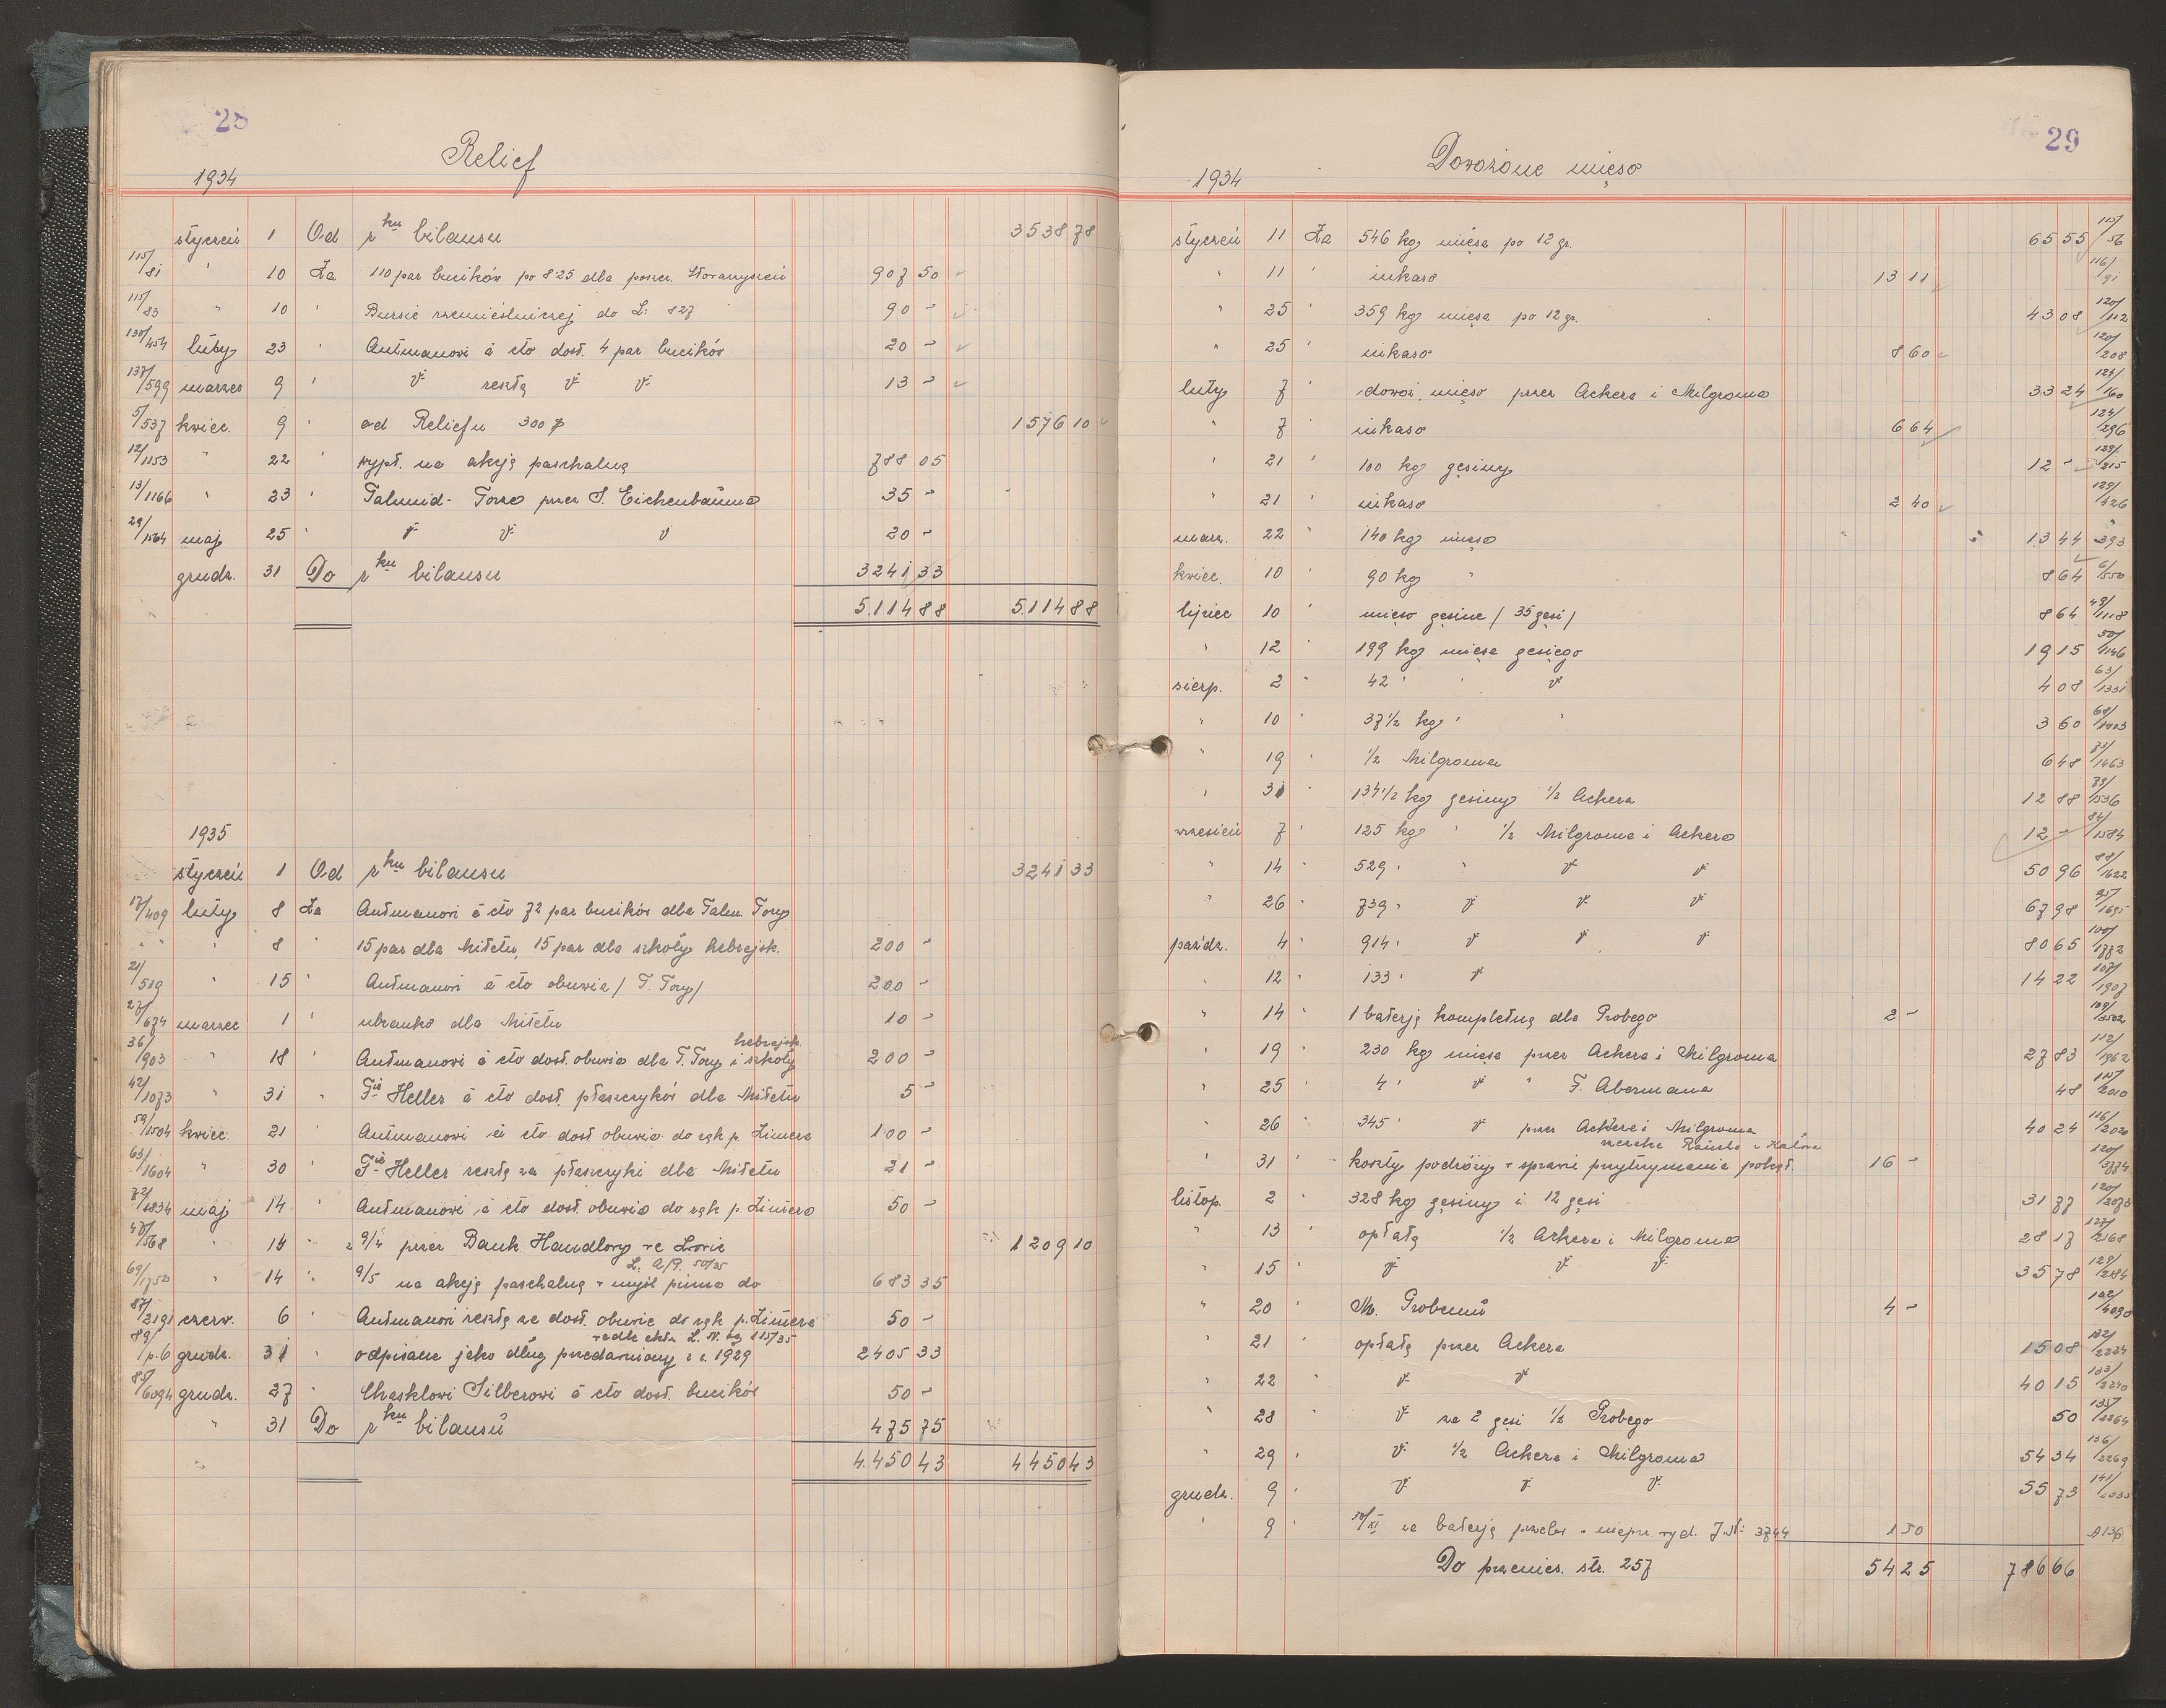 28
Relief
1934
styczeń 1 Od r ku bilansu 3538 78
115/81 " 10 Za 110 par bucików po 8 25 dla poszcz. Stowarzyszeń 907 50
115/83 " 10 " Bursie rzemieślniczej do L: 827 90 -
130/454 luty 23 " Autmanowi á cto dost. 4 par bucików 20 -
137/599 marzec 9 " " resztę " " 13 -
5/537 kwiec. 9 " od Reliefu 300 $ 1576 10
12/1153 " 22 " wypł. na akcję paschalną 788 05
13/1166 " 23 " Talmid-Torze przez S. Eichenbauma 35 -
29/1564 maj 25 " " " " 20 -
grudz. 31 Do r ku bilansu 3241 33
5.114 88 5.114 88
1935
styczeń 1 Od r ku bilansu 3241 33
17/409 luty 8 Za Autmanowi á cto 72 par bucików dla Talm. Tory
" " " 8 " 15 par dla Mitetu, 15 par dla szkoły hebrajsk. 200 -
21/519 " 15 " Autmanowi á cto obuwia / T. Tory / 200 -
27/674 marzec 1 " ubranko dla Mitetu 10 -
36/903 " 18 " Autmanowi á cto dost. obuwia dla T. Tory i szkoły hebrajsk. 200 -
42/1073 " 31 " Fie Heller á cto dost. płaszczyków dla Mitetu 5 -
59/1504 kwiec. 21 " Autmanowi á cto dost obuwia do rąk p. Zimera 100 -
63/1604 " 30 " Fie Heller resztę za płaszczyki dla Mitetu 21 -
72/1834 maj 14 " Autmanowi á cto dost. obuwia do rąk p. Zimera 50 -
47/568 " 14 " z 9/4 przez Bank Handlowy we Lwowie 1209 10
69/1750 " 14 " 9/5 na akcję paschalną w myśl pisma do L: A/P. 50/35 683 35
87/2191 czerw. 6 " Autmanowi resztę za dost. obuwie do rąk p. Zimera 50 -
89/p.6 grudz. 31 " odpisane jako dług przedawniony z r. 1929 2405 33
85/6094 grudz. 27 " Chasklowi Silberowi á cto dost. bucików 50 -
" 31 Do r ku bilansu 475 75
4.450 43 4450 43
29
Dowożone mięso
1934
styczeń 11 Za 546 kg mięsa po 12 gr. 65 55 115/56
" 11 " inkaso 13 11 116/91
" 25 " 359 kg mięsa po 12 gr. 43 08 120/112
" 25 " inkaso 8 60 120/208
luty 7 " dowoż. mięso przez Ackera i Milgroma 33 24 124/160
" 7 " inkaso 6 64 124/296
" 21 " 100 kg gęsiny 12 - 129/215
" 21 " inkaso 2 40 129/426
marz. 22 " 140 kg mięsa 13 44 393
kwiec. 10 " 90 kg " 8 64 6/550
lipiec 10 " mięso gęsine / 35 gęsi / 8 64 49/1118
" 12 " 199 kg mięsa gęsiego 19 15 50/1146
sierp. 2 " 42 " " " 4 08 63/1331
" 10 " 37 1/2 kg " " 3 60 68/1403
" 19 " 1/2 Milgroma 6 48 73/1463
" 31 " 134 1/2 kg gęsiny 1/2 Ackera 12 88 79/1536
wrzesień 7 " 125 kg " 1/2 Milgroma i Ackera 12 - 84/1584
" 14 " 529 " " " " 50 96 88/1622
" 26 " 739 " " " " 67 98 95/1695
paździ. 4 " 914 " " " " 80 65 100/1772
" 12 " 133 " " 14 22 107/1907
" 14 " 1 baterję kompletną dla Probego 2 - 109/3502
" 19 " 230 kg mięsa przez Ackera i Milgroma 27 83 112/1962
" 25 " 4 " " " F. Abermana 48 115/2010
" 26 " 345 " " przez Ackera i Milgroma 40 24 116/2020
" 31 " koszty podróży w sprawie przytrzymania pokąt. 16 - 120/3774
listop. 2 " 328 kg gęsiny i 12 gęsi 31 77 120/2073
" 13 " opłatę 1/2 Ackera i Milgroma 28 17 127/2168
" 15 " " " " 35 78 129/2184
" 20 " M. Probemu 4 - 132/4090
" 21 " opłatę przez Ackera 15 08 132/2224
" 22 " " " 40 15 133/2240
" 28 " " za 2 gęsi 1/2 Probego 50 135/2264
" 29 " " 1/2 Ackera i Milgroma 54 34 136/2269
grudz. 9 " " " " 55 73 141/
" 9 " 30/XI za baterję 1 50 A136
Do przenies. str. 257 54 25 786 66